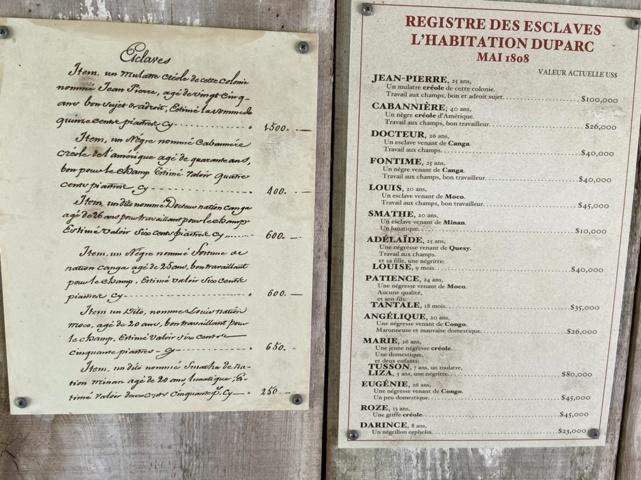 Esclaves
Item, un mulatre créole de cette colonie
nommé Jean Pierre, agé de vingt cinq
ans bon sujet et adroit, Estimé la somme de
quinze cents piastres Cy 1500.
Item, un Nègre nommé Cabannière
créole de l'amérique agé de quarante ans,
bon pour le champ Estimé valoir quatre
cents piastres Cy 400.
Item, un dit nommé Docteur nation canga
agé de 26 ans pour travaillant pour le champ
Estimé valoir Six cents piastres Cy 600.
Item, un Nègre nommé Fontime de
nation canga agé de 25 ans, bon travaillant
pour le champ, Estimé valoir Six cents
piastres Cy 600.
Item un dito, nommé Louis nation
moco, agé de 20 ans, bon travaillant pour
le champ, Estimé valoir Six cents
cinquante piastres Cy 650.
Item, un dito nommé Smathe de na-
tion minan agé de 20 ans, lunatique, Es-
timé valoir deux cents Cinquante P. Cy 250
REGISTRE DES ESCLAVES
L'HABITATION DUPARC
MAI 1808
VALEUR ACTUELLE US$
JEAN-PIERRE, 25 ans,
Un mulatre créole de cette colonie.
Travail aux champs, bon et adroit sujet. $100,000
CABANNIÈRE, 40 ans,
Un nègre créole d'Amérique.
Travail aux champs, bon travailleur. $26,000
DOCTEUR, 26 ans,
Un esclave venant de Canga.
Travail aux champs. $40,000
FONTIME, 25 ans,
Un nègre venant de Canga.
Travail aux champs, bon travailleur. $40,000
LOUIS, 20 ans,
Un esclave venant de Moco.
Travail aux champs, bon travailleur. $45,000
SMATHE, 20 ans,
Un esclave venant de Minan.
Un lunatique. $10,000
ADÉLAÏDE, 25 ans,
Une négresse venant de Quesy.
Travail aux champs.
et sa fille, une négritte:
LOUISE, 9 mois $40,000
PATIENCE, 24 ans,
Une négresse venant de Moco.
Aucune qualité.
et son fils:
TANTALE, 18 mois. $35,000
ANGÉLIQUE, 20 ans,
Une négresse venant de Congo.
Maronneuse et mauvaise domestique. $26,000
MARIE, 26 ans,
Une jeune négresse créole.
Une domestique,
et deux enfants:
TUSSON, 7 ans, un mulatre,
LIZA, 5 ans, une négritte. $80,000
EUGÉNIE, 26 ans,
Une négresse venant de Congo.
Un peu domestique. $45,000
ROZE, 13 ans,
Une griffe créole. $45,000
DARINCE, 8 ans,
Un négrillon orphelin. $23,000